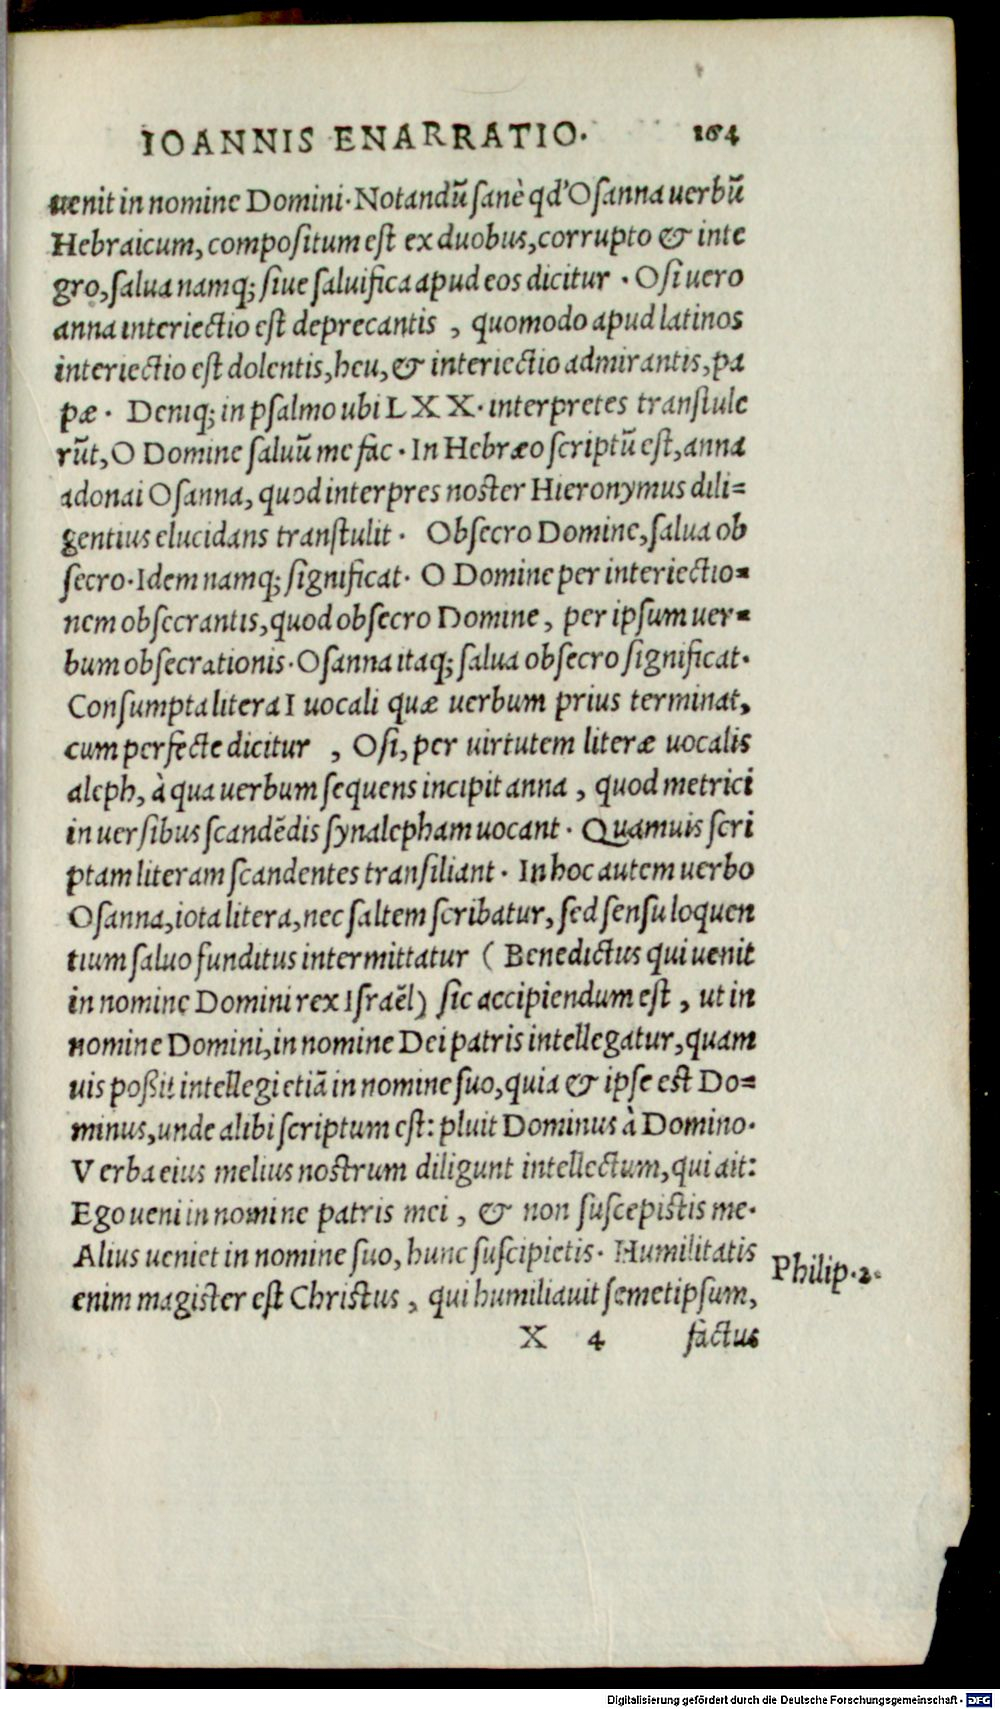 IOANNIS ENARRATIO. 164
uenit in nomine Domini. Notandũ sanè qd' Osanna uerbũ
Hebraicum, compositum est ex duobus, corrupto & inte
gro, salua namq; siue saluifica apud eos dicitur . Osi uero
anna interiectio est deprecantis , quomodo apud latinos
interiectio est dolentis, heu, & interiectio admirantis, pa
pæ . Deniq; in psalmo ubi LXX. interpretes transtule
rũt, O Domine saluũ me fac . In Hebræo scriptũ est, anna
adonai Osanna, quod interpres noster Hieronymus dili=
gentius elucidans transtulit . Obsecro Domine, salua ob
secro. Idem namq; significat. O Domine per interiectio=
nem obsecrantis, quod obsecro Domine, per ipsum uer=
bum obsecrationis. Osanna itaq; salua obsecro significat.
Consumpta litera I uocali quæ uerbum prius terminat,
cum perfecte dicitur , Osi, per uirtutem literæ uocalis
aleph, à qua uerbum sequens incipit anna , quod metrici
in uersibus scandẽdis synalepham uocant . Quamuis scri
ptam literam scandentes transiliant . In hoc autem uerbo
Osanna, iota litera, nec saltem scribatur, sed sensu loquen
tium saluo funditus intermittatur ( Benedictus qui uenit
in nomine Domini rex Israẽl) sic accipiendum est , ut in
nomine Domini, in nomine Dei patris intellegatur, quam
uis poßit intellegi etiã in nomine suo, quia & ipse est Do=
minus, unde alibi scriptum est: pluit Dominus à Domino.
Verba eius melius nostrum diligunt intellectum, qui ait:
Ego ueni in nomine patris mei , & non suscepistis me.
Alius ueniet in nomine suo, hunc suscipietis. Humilitatis
enim magister est Christus , qui humiliauit semetipsum,
Philip. 2.
X 4 factus
Digitalisierung gefördert durch die Deutsche Forschungsgemeinschaft - DFG